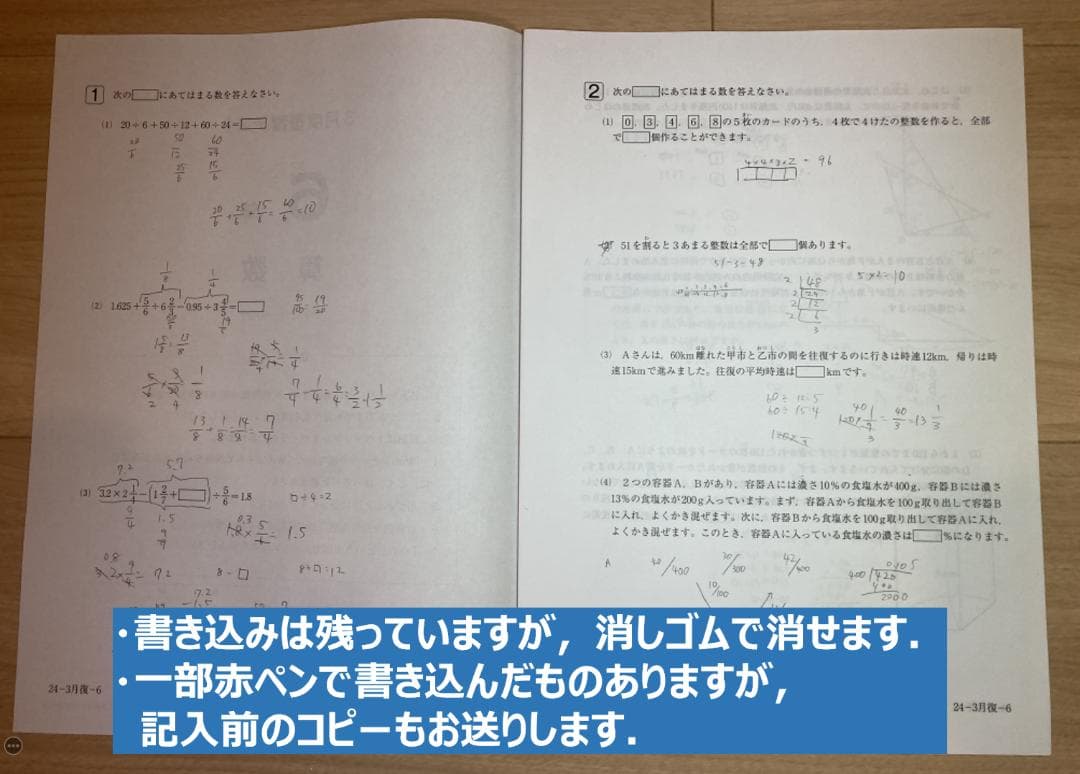 1 次の□にあてはまる数を答えなさい。
(1) 20÷6+50÷12+60÷24=□
20/6 50/12 60/24
25/6 15/6
20/6+25/6+15/6=60/6=10
1/8 1/4
(2) 1.625+5/6÷6 2/3-0.95÷3 4/5=□
95/100 19/20
1 5/8=13/8
1/4
1/8
13/8+1/8=14/8=7/4
7.2 5.7
(3) 3.2×2 1/4-(1 2/7+□)÷5/6=1.8
□÷4=2
9/4 1.5
1.5
7.2 8-□ 8÷□=12
7.2
24-3月復-6
2 次の□にあてはまる数を答えなさい。
(1) 0, 3, 4, 6, 8の5枚のカードのうち、4枚で4けたの整数を作ると、全部
で□個作ることができます。
4×4×3×2=96
51を割ると3あまる整数は全部で□個あります。
51-3=48
5×2=10
2 48
2 24
2 12
2 6
3
(3) Aさんは、60km離れた甲市と乙市の間を往復するのに行きは時速12km、帰りは時
速15kmで進みました。往復の平均時速は□kmです。
60÷12=5
60÷15=4
40/3=13 1/3
(4) 2つの容器A、Bがあり、容器Aには濃さ10%の食塩水が400g、容器Bには濃さ
13%の食塩水が200g入っています。まず、容器Aから食塩水を100g取り出して容器B
に入れ、よくかき混ぜます。次に、容器Bから食塩水を100g取り出して容器Aに入れ、
よくかき混ぜます。このとき、容器Aに入っている食塩水の濃さは□%になります。
A 40/400 30/300 42/400
400 420
400
2000
10/100
24-3月復-6
・書き込みは残っていますが，消しゴムで消せます．
・一部赤ペンで書き込んだものありますが，
記入前のコピーもお送りします．